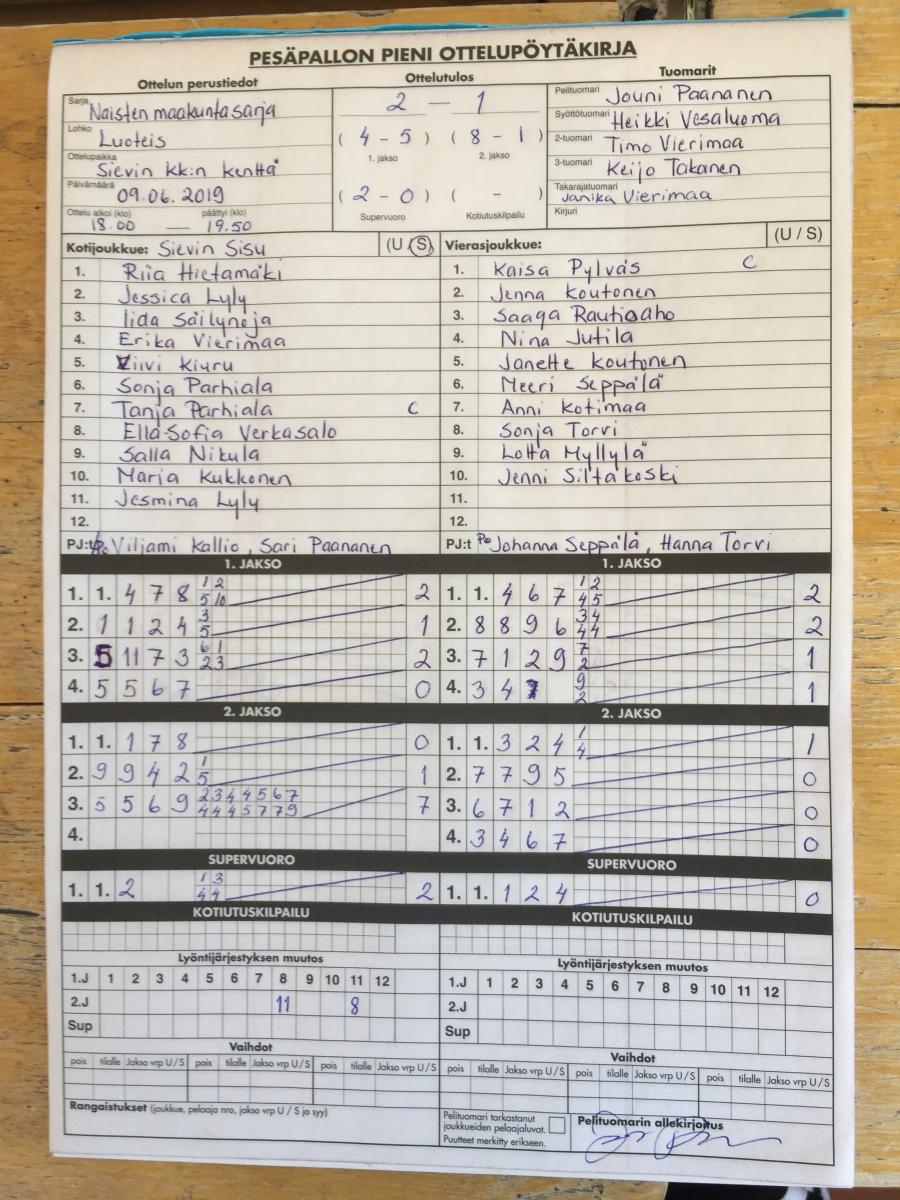 PESÄPALLON PIENI OTTELUPÖYTÄKIRJA
Ottelun perustiedot
Sarja Naisten maakuntasarja
Lohko Luoteis
Ottelupaikka Sievin kk:n kenttä
Päivämäärä 09.06.2019
Ottelu alkoi (klo) päättyi (klo)
18.00 — 19.50
Ottelutulos
2 — 1
(4 - 5) (8 - 1)
1. jakso 2. jakso
(2 - 0) ( - )
Supervuoro Kotiutuskilpailu
Tuomarit
Pelituomari Jouni Paananen
Syöttötuomari Heikki Vesaluoma
2-tuomari Timo Vierimaa
3-tuomari Keijo Takanen
Takarajatuomari Janika Vierimaa
Kirjuri
Kotijoukkue: Sievin Sisu (U / S)
1. Riia Hietamäki
2. Jessica Lyly
3. Iida Säilynoja
4. Erika Vierimaa
5. Viivi Kiuru
6. Sonja Parhiala
7. Tanja Parhiala C
8. Ella-Sofia Verkasalo
9. Salla Nikula
10. Maria Kukkonen
11. Jesmina Lyly
12.
PJ:t Viljami Kallio, Sari Paananen
Vierasjoukkue: (U / S)
1. Kaisa Pylväs C
2. Jenna Koutonen
3. Saaga Rautioaho
4. Nina Jutila
5. Janette Koutonen
6. Meeri Seppälä
7. Anni Kotimaa
8. Sonja Torvi
9. Lotta Myllylä
10. Jenni Siltakoski
11.
12.
PJ:t Po Johanna Seppälä, Hanna Torvi
1. JAKSO
1. 1. 4 7 8 1 2 2
5 10
2. 1 1 2 4 3 1
5
3. 5 11 7 3 6 1 2
2 3
4. 5 5 6 7 0
2. JAKSO
1. 1. 1 7 8 0
2. 9 9 4 2 1 1
5
3. 5 5 6 9 2 3 4 4 5 6 7 7
4 4 4 5 7 7 9
4.
SUPERVUORO
1. 1. 2 1 3 2
4 4
KOTIUTUSKILPAILU
Lyöntijärjestyksen muutos
1.J 1 2 3 4 5 6 7 8 9 10 11 12
2.J 11 8
Sup
Vaihdot
pois tilalle Jakso vrp U / S pois tilalle Jakso vrp U / S pois tilalle Jakso vrp U / S
Rangaistukset (joukkue, pelaaja nro, jakso vrp U / S ja syy)
1. JAKSO
1. 1. 4 6 7 1 2 2
4 5
2. 8 8 9 6 3 4 2
4 4
3. 7 1 2 9 7 1
2
4. 3 4 9 1
2
2. JAKSO
1. 1. 3 2 4 1 1
4
2. 7 7 9 5 0
3. 6 7 1 2 0
4. 3 4 6 7 0
SUPERVUORO
1. 1. 1 2 4 0
KOTIUTUSKILPAILU
Lyöntijärjestyksen muutos
1.J 1 2 3 4 5 6 7 8 9 10 11 12
2.J
Sup
Vaihdot
pois tilalle Jakso vrp U / S pois tilalle Jakso vrp U / S pois tilalle Jakso vrp U / S
Pelituomari tarkastanut
joukkueiden pelaajaluvat.
Puutteet merkitty erikseen.
Pelituomarin allekirjoitus